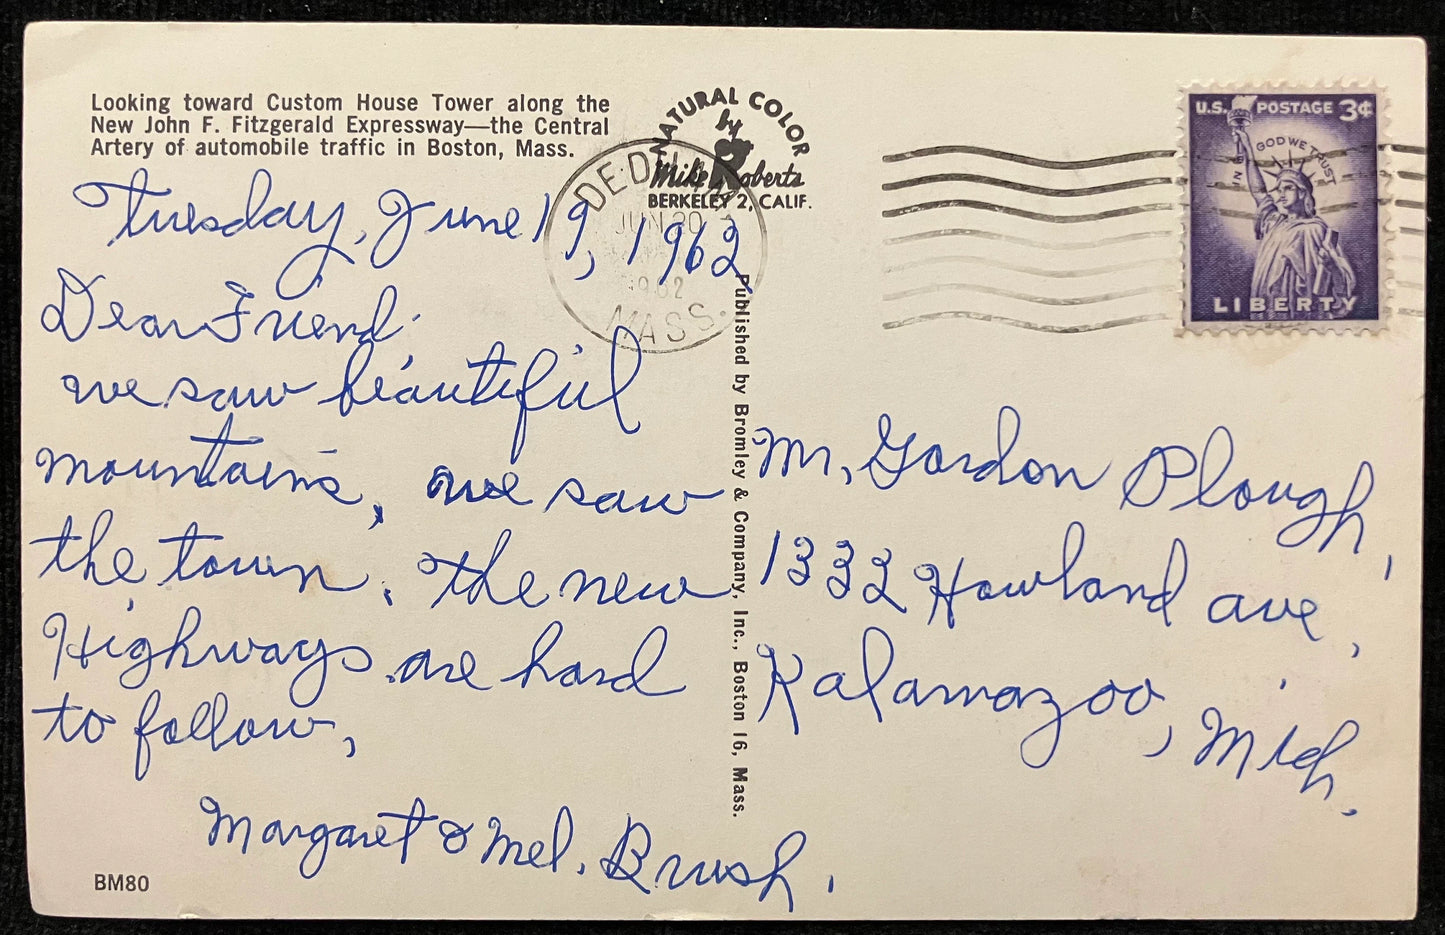 Looking toward Custom House Tower along the
New John F. Fitzgerald Expressway—the Central
Artery of automobile traffic in Boston, Mass.
NATURAL COLOR
by
Mike Roberts
BERKELEY 2, CALIF.
U.S. POSTAGE 3¢
IN GOD WE TRUST
LIBERTY
JUN 20
1962
MASS.
Tuesday, June 19, 1962
Dear Friend.
we saw beautiful
mountains, we saw
the town. The new
Highways are hard
to follow,
Margaret & Mel. Brush.
Published by Bromley & Company, Inc., Boston 16, Mass.
Mr, Gordon Plough,
1332 Howland ave,
Kalamazoo, Mich.
BM80